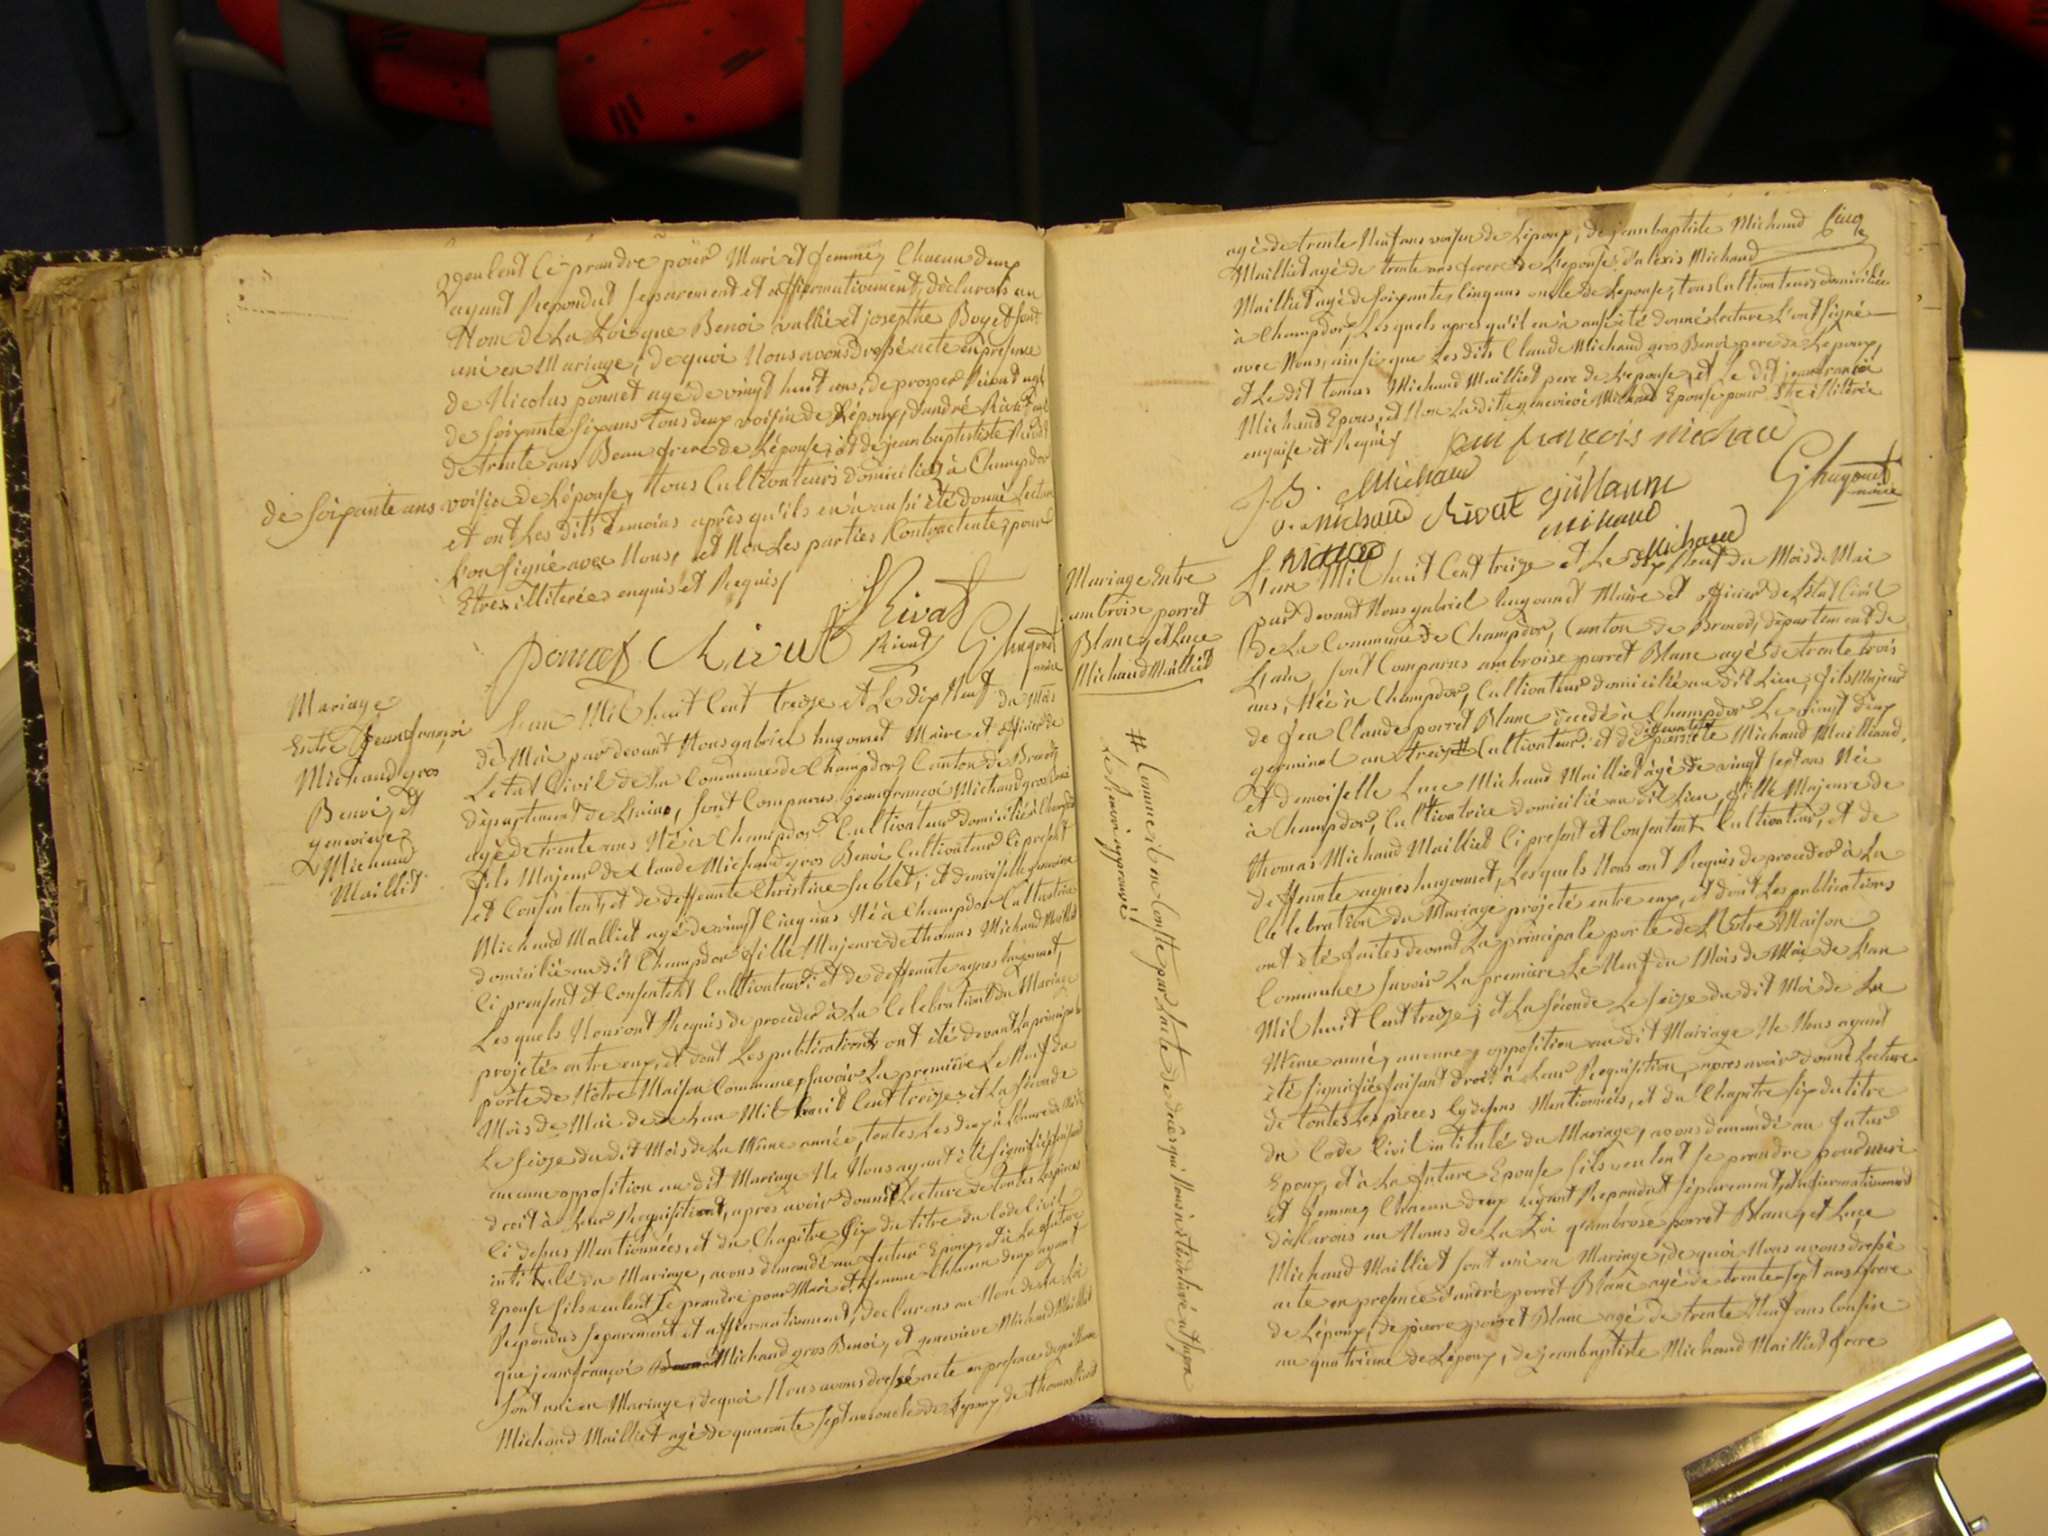 veulent ce prandre pour Mari et femme, Chacun deux
ayant Repondut separement et affirmativement, déclarons au
Nom de La Loi que Benoi vallié et josepthe Boyet sont
uni en Mariage; de quoi Nous avons dressé acte en presence
de Nicolas ponnet agé de vingt huit ans, de prosper Rivat agé
de soixante six ans tous deux voisin de L'époux, d'andré Rivat agé
de trente ans Beau frere de L'épouse; et de jean baptististe Rivat
de soixante ans voisin de L'épouse, tous Cultivateurs domiciliés à Champdor
et ont Les dits temoins après qu'ils en a aussi été donné Lecture
L'on signé avec Nous, et Non Les parties Contractente, pour
Etres illiterées enquis et Requis
Rivat
ponnet Rivat Rivat G. hugonnet
maire
Mariage
Entre Jean françoi
Michaud gros
Benoi, et
genevieve
Michaud
Malliet
L'an Mil huit Cent treize et Le dix Neuf du Mois
de Mai par devant Nous gabriel hugonnet Maire et officier de
L'etat Civil de La Commune de Champdor, Canton de Brenod
département de L'ain, sont Comparus jean françoi Michaud gros Benoi
agé de trente ans Né à Champdor Cultivateur domicilié à Champdor
fils Majeur de Claude Michaud gros Benoi Cultivateur Ci present
et Consentent, et de deffeunte Christine sublet; et demoiselle genevieve
Michaud Malliet agé de vingt Cinq ans Né à Champdor Cultivatrice
domicilié au dit Champdor fille Majeure de thomas Michaud Malliet
Ci prensent et Consentent Cultivateur; et de deffeunte agnes hugonnet,
Les quels Nous ont Requis de proceder à La Celebration du Mariage
projeté entre eux, et dont Les publications ont été devant La principale
porte de Nôtre Maison Commune, savoir La première Le Neuf du
Mois de Mai de L'an Mil huit Cent treize et La séconde
Le seize du dit Mois de La Même année, toutes Les deux à L'heure de Midi
aucune opposition au dit Mariage Ne Nous ayant été signifiée, faisant
droit à Leur Requisitiont, après avoir donné Lecture de toutes Les pieces
Ci dessus Mentionnées, et du Chapitre six du titre du Code Civil
intitulé du Mariage, avons demandé au futur Epoux, et à La future
Epouse s'ils veulent se prandre pour Mari et femme Chacun deux ayant
Repondus separement et affirmativement, declarons au Nom de La Loi
que jean françoi Michaud gros Benoi, et genevieve Michaud Malliet
sont uni en Mariage; de quoi Nous avons dressé acte en presence de guillaume
Michaud Malliet agé de quarante sept ans oncle de L'epoux de thomas Rivat
Cinq
agé de trente Neuf ans voisin de L'époux, de jean baptiste Michaud
Mailliet agé de trente ans frere de L'epouse, d'alexis Michaud
Mailliet agé de soixante, Cinq ans oncle de L'epouse, tous Cultivateurs domiciliés
à Champdor, Les quels apres qu'il en à aussi été donné Lecture L'ont signé
avec Nous, ainsi que Les dits Claude Michaud gros Benoi pere de L'époux,
et Le dit tomas Michaud Mailliet pere de L'epouse, et Le dit jean francoi
Michaud Epoux, et Non La dite genevieve Michaud Epouse pour Etre illiterée
enquise et Requis
jean françois michaud
J. B. Michaud G. hugonnet
maire
michaud Rivat Guillaume
michaud
michaud Michaud
Mariage Entre
ambroise porret
Blanc, et Luce
Michaud Mailliet
L'an Mil huit Cent treize et Le dix Neuf du Mois de Mai
par devant Nous gabriel hugonnet Maire et officier de L'état Civil
de La Commune de Champdor, Canton de Brenod, département de
L'ain, sont Comparus ambroise porret Blanc agé de trente trois
ans, Né à Champdor, Cultivateur domicilié au dit Lieu, fils Majeur
de feu Claude porret Blanc décedé à Champdor Le vingt deux
germinal an treize # Cultivateur; et de pierrete Michaud Mailliand,
et demoiselle Luce Michaud Mailliet âgé de vingt sept ans Né
à Champdor, Cultivatrice domicilié au dit Lieu, fille Majeure de
thomas Michaud Mailliet Ci present et Consentent Cultivateur, et de
deffeunte agnes hugonnet, Les quels Nous ont Requis de proceder à La
Celebration du Mariage projeté entre eux, et dont Les publications
ont été faites devant La principale porte de Nôtre Maison
Commune, savoir La premiere Le Neuf du Mois de Mai de L'an
Mil huit Cent treize; et La séconde Le seize du dit Mois de La
Même année, aucune opposition au dit Mariage Ne Nous ayant
été signifiée, faisant droit à Leur Requisition, apres avoir donné Lecture
de toutes Les pieces Cy dessus Mentionnées, et du Chapitre six du titre
du Code Civil intitulé du Mariage, avons demandé au futur
Epoux, et à La future Epouse s'ils veulent se prandre pour mari
et femme, Chacun deux ayant Repondut séparement, et affirmativement
déclarons au Noms de La Loi qu'ambroise porret Blanc, et Luce
Michaud Mailliet sont uni en Mariage, de quoi Nous avons dressé
acte en presence d'andré porret Blanc agé de trente sept ans frere
de L'époux, de pierre porret Blanc agé de trente Neuf ans Cousin
au quatrieme de L'epoux, de jean baptiste Michaud Mailliet frere
# Comme il en Conste par L'acte de décès qui Nous a été delivré
Le Renvoi approuvé